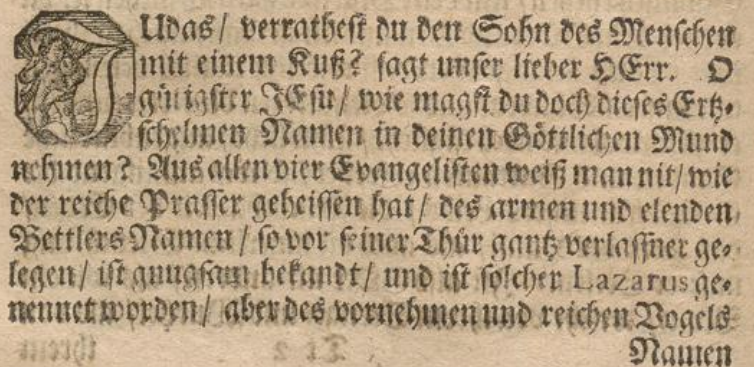 JUdas / verrathest du den Sohn des Menschen
mit einem Kuß? sagt unser lieber HErr. O
gütigster JEsu / wie magst du doch dieses Ertz-
schelmen Namen in deinen Göttlichen Mund
nehmen? Aus allen vier Evangelisten weiß man nit / wie
der reiche Prasser geheissen hat / des armen und elenden
Bettlers Namen / so vor seiner Thür gantz verlassner ge-
legen / ist gnugsam bekandt / und ist solcher Lazarus ge-
nennet worden / aber des vornehmen und reichen Vogels
Namen